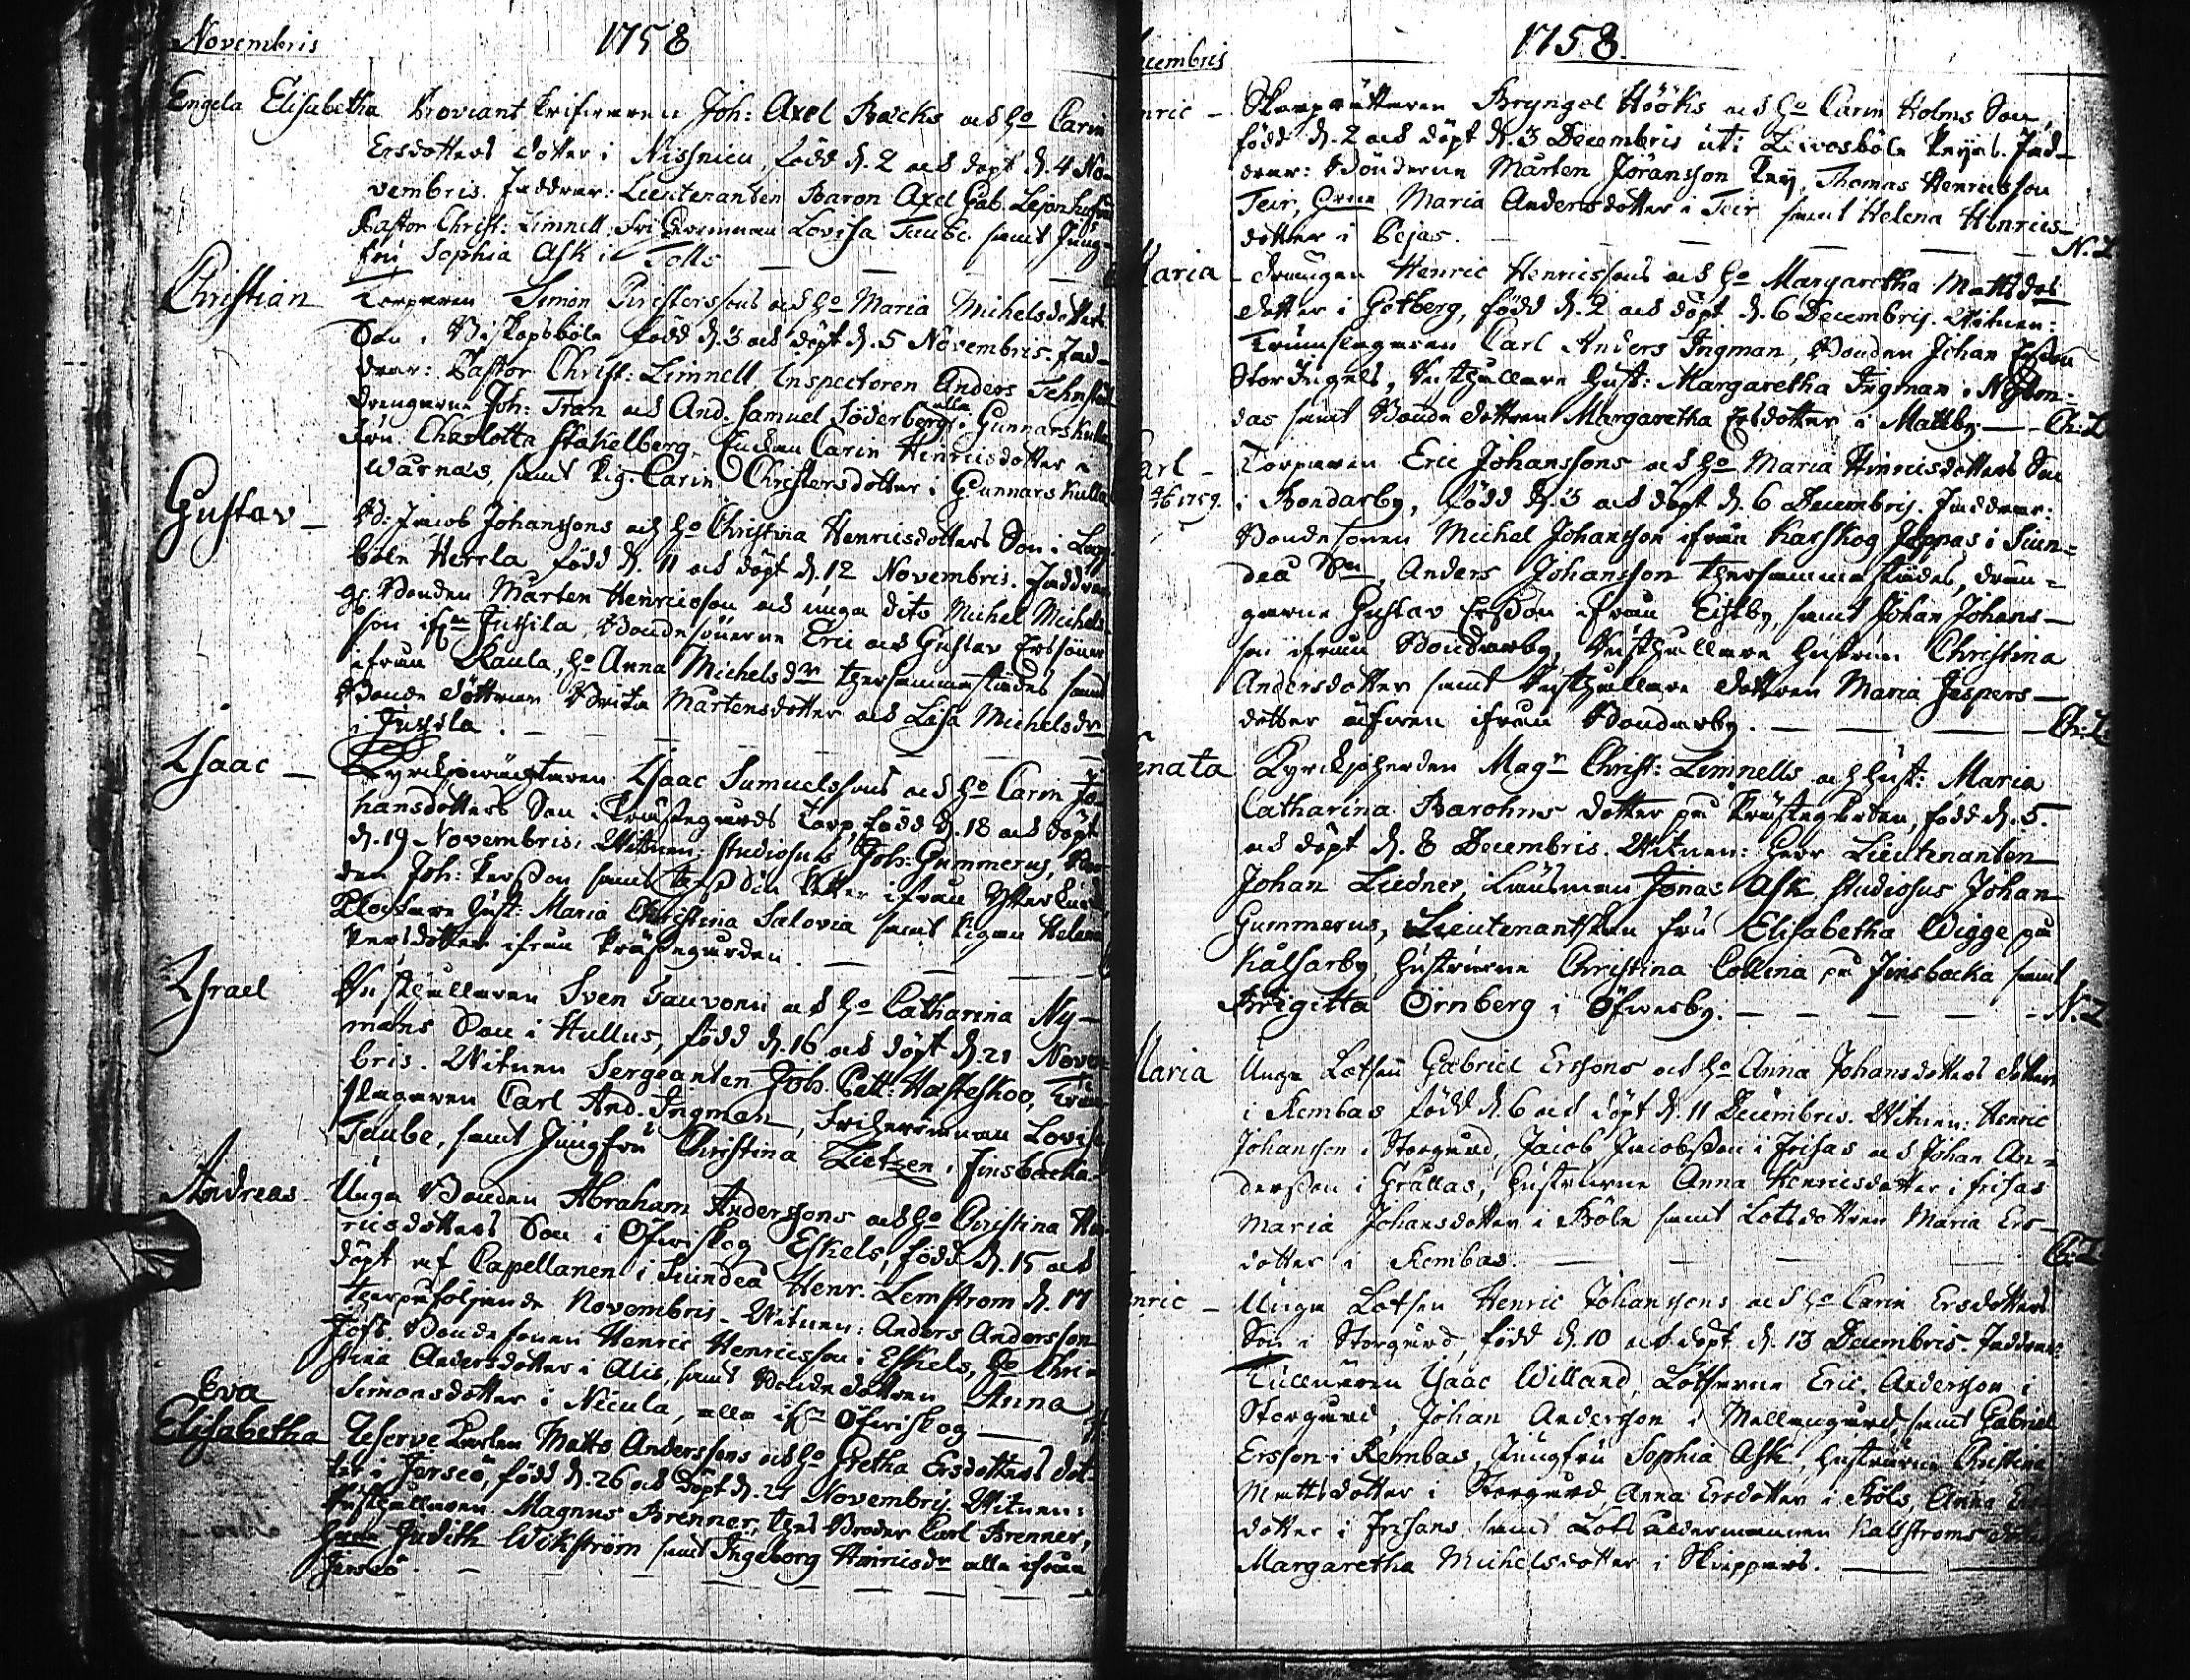 Novembris 1758
Engela Elisabetha Proviant Skrifvaren Joh: Axel Backs och h:o Carin
Ersdotters dotter i Nissnicu, född d. 2 och döpt d. 4 No-
vembris. Faddrar: Lieutenanten Baron Axel Gab. Lejonhufvud
Pastor Christ: Limnell, Friherrinnan Lovisa Taube samt Jung-
fru Sophia Ask i Tolls
Christian Torparen Simon Christerssons och h:o Maria Michelsdotters
Son i Biskopsböle född d. 3 och döpt d. 5 Novembris. Fad-
drar: Pastor Christ: Limnell, Inspectoren Anders
drengarne Joh: Tran och And. Samuel Söderberg alla i Gunnarskulla
Fru Charlotta Stakelberg, Enckan Carin Hinricsdotter i
Wärnäs, samt Pig. Carin Christersdotter i Gunnarskulla
Gustav - B: Jacob Johanssons och h:o Christina Henricsdotters Son i Lapp
böle Herrla född d. 11 och döpt d. 12 Novembris. Faddrar
gs. Bonden Mårten Henricsson och unga dito Michel Michels-
son ifrån Jussila, Bondesönerne Eric och Gustav Ers söner
ifrån Raula, h:o Anna Michelsdr thersammastädes samt
Bonde döttrar Brita Mårtensdotter och Lisa Michelsdr
i Jussila.
Isaac - Kyrckiowäcktaren Isaac Samuelssons och h:o Carin Jo-
hansdotters Son i Prästegårds Torp, född d. 18 och döpt
d. 19 Novembris. Witnen: Studiosus Joh: Gummerus, Bon
den Joh: Persson samt
Klockare hust: Maria Christina Salovia samt Pigan Helena
Persdotter ifrån Prästegården
Israel Inhysesvaren Sven Sauvonii och h:o Catharina Ny-
mans Son i Hullus, född d. 16 och döpt d. 21 Novem
bris. Witnen Sergeanten Joh. Pett: Hästesko, Trum
slagaren Carl And. Ingman, Friherrinnan Lovisa
Taube, samt Jungfru Christina Lietzen i Finsbacka.
Andreas Unga Bonden Abraham Anderssons och h:o Christina Hen
ricsdotters Son i Öfwiskog Eskels, född d. 15 och
döpt af Capellanen i Siundeå Henr. Lemstrom d. 17
therpåföljande Novembris. Witnen: Anders Andersson
Jofs. Bondesonen Henric Henricsson i Eskels, h:o Chri-
stina Andersdotter i Alis, samt Bondedottren Anna
Simonsdotter i Nicula, alla ifrån Öfwiskog
Eva
Elisabetha Reserve Karlen Matts Anderssons och h:o Gretha Ersdotters dot-
ter i Jerseö, född d. 26 och döpt d. 27 Novembris. Witnen:
Magnus Brenner, thes Broder Carl Brenner,
Judith Wikström samt Ingeborg Hinricsdr alla ifrån
Jerseö
cembris 1758
nric - Skarprättaren Bryngel Hööks och h:o Carin Holms Son,
född d. 2 och döpt d. 3 Decembris uti Lervosböle Keyas. Fad-
drar: Bönderne Mårten Jöransson Key, Thomas Henricsson
Teir, Maria Andersdotter i Teir samt Helena Hinrics-
dotter i Bejas. N. L
Maria - Drengen Henric Henricssons och h:o Margaretha Mattsdos
dotter i Götberg, född d. 2 och döpt d. 6 Decembris. Witnen:
Trumslagaren Carl Anders Ingman, Bonden Johan Ersson
Stor Ingels, hust: Margaretha Ingman i
das samt Bonde dottren Margaretha Ersdotter i Mattby - Ch: L
Carl - Torparen Eric Johanssons och h:o Maria Hinricsdotters Son
1759. i Bondarby, född d. 3 och döpt d. 6 Decembris. Faddrar:
Bondesonen Michel Johansson ifrån Karskog Joppas i Siun-
deå Sn, Anders Johansson thersammastädes, dren-
garne Gustav Ersson ifrån Eistby, samt Johan Johans-
son ifrån Bondarby, hustrun Christina
Andersdotter samt dottren Maria Jespers-
dotter äfwen ifrån Bondarby. Ch: L
enata Kyrckjoherden Magr Christ: Limnells och hust: Maria
Catharina Barohms dotter på Prästegården, född d. 5.
och döpt d. 8 Decembris. Witnen: Herr Lieutenanten
Johan Liedner, Länsman Jonas Ask, Studiosus Johan
Gummerus, Lieutenantskan fru Elisabetha Wigge på
Kålsarby, hustrurne Christina Collina på Finsbacka samt
Brigitta Örnberg i Öfwerby. N. L
Maria Unga Lotsen Gabriel Erssons och h:o Anna Johansdotters dotter
i Rembas född d. 6 och döpt d. 11 Decembris. Witnen: Henric
Johansson i Storgård, Jacob Jacobsson i Frisas och Johan An-
dersson i Grällas, hustrurne Anna Henricsdotter i Frisas
Maria Johansdotter i Böle samt Lotsdottren Maria Ers-
dotter i Rembas. Ch: L
nric - Unga Lotsen Henric Johanssons och h:o Carin Ersdotters
Son i Storgård, född d. 10 och döpt d. 13 Decembris. Faddrar:
Tullnären Isaac Willand, Lotsarne Eric Andersson i
Storgård, Johan Andersson i Mellangård, samt Gabriel
Ersson i Rembas, Jungfru Sophia Ask, hustrurne Christina
Mattsdotter i Storgård, Anna Ersdotter i Böls, Anna Ers
dotter i Frisans samt Lots åldermannen Kallstroms
Margaretha Michelsdotter i Skippars.